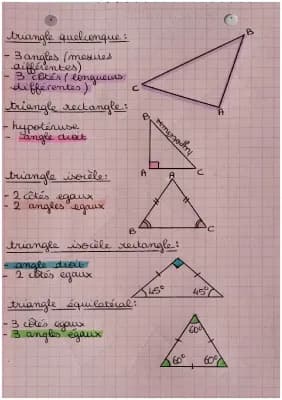 triangle quelconque:
- 3 angles (mesures
différentes)
- 3 côtés (longueurs
différentes)
B
C
A
triangle rectangle:
- hypoténuse
- angle droit
B
hypoténuse
A
C
triangle isocèle:
- 2 côtés egaux
- 2 angles egaux
A
B
C
triangle isocèle rectangle:
- angle droit
- 2 côtés egaux
45°
45°
triangle équilatéral:
- 3 côtés egaux
- 3 angles égaux
60°
60°
60°